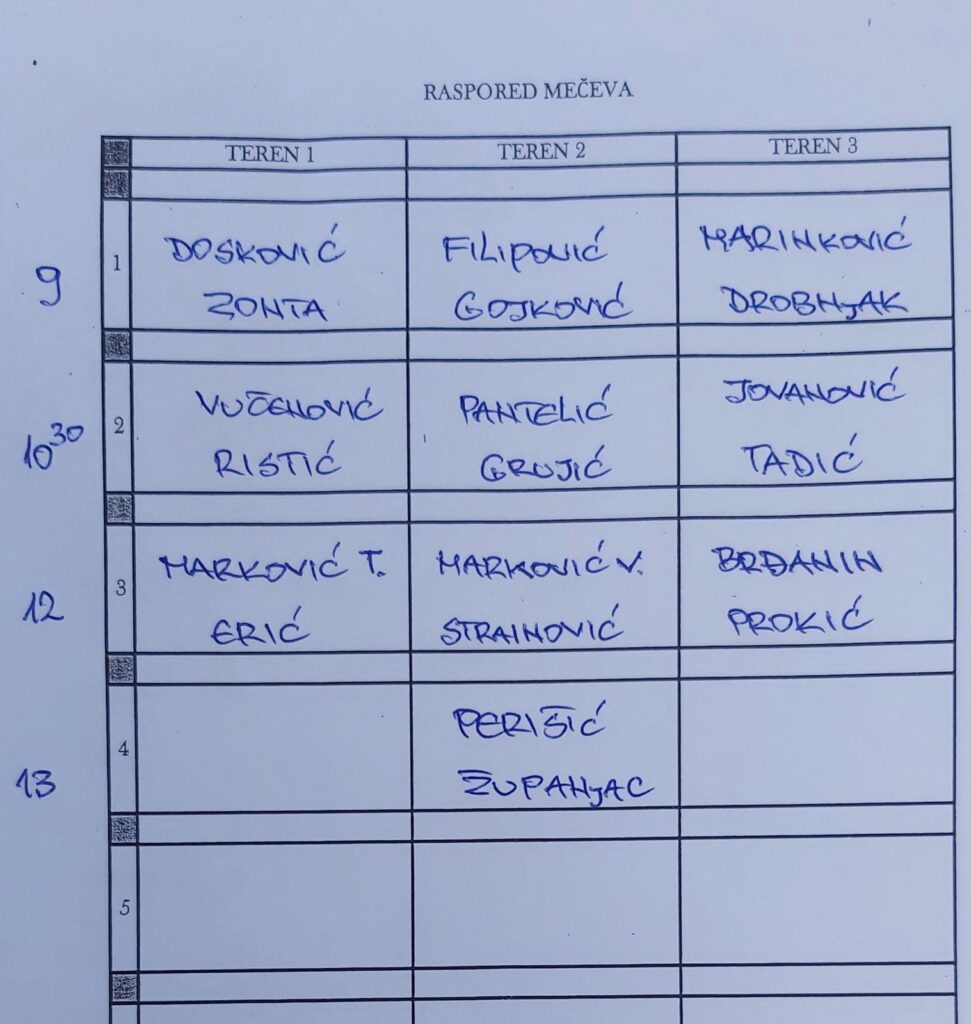 RASPORED MEČEVA
TEREN 1 TEREN 2 TEREN 3
DOSKOVIĆ FILIPOVIĆ MARINKOVIĆ
9 1
ZONTA GOJKOVIĆ DROBNJAK
VUČENOVIĆ PANTELIĆ JOVANOVIĆ
10 30 2
RISTIĆ GRUJIĆ TADIĆ
MARKOVIĆ T. MARKOVIĆ V. BRĐANIN
12 3
ERIĆ STRAINOVIĆ PROKIĆ
PERIŠIĆ
13 4
ŽUPANJAC
5